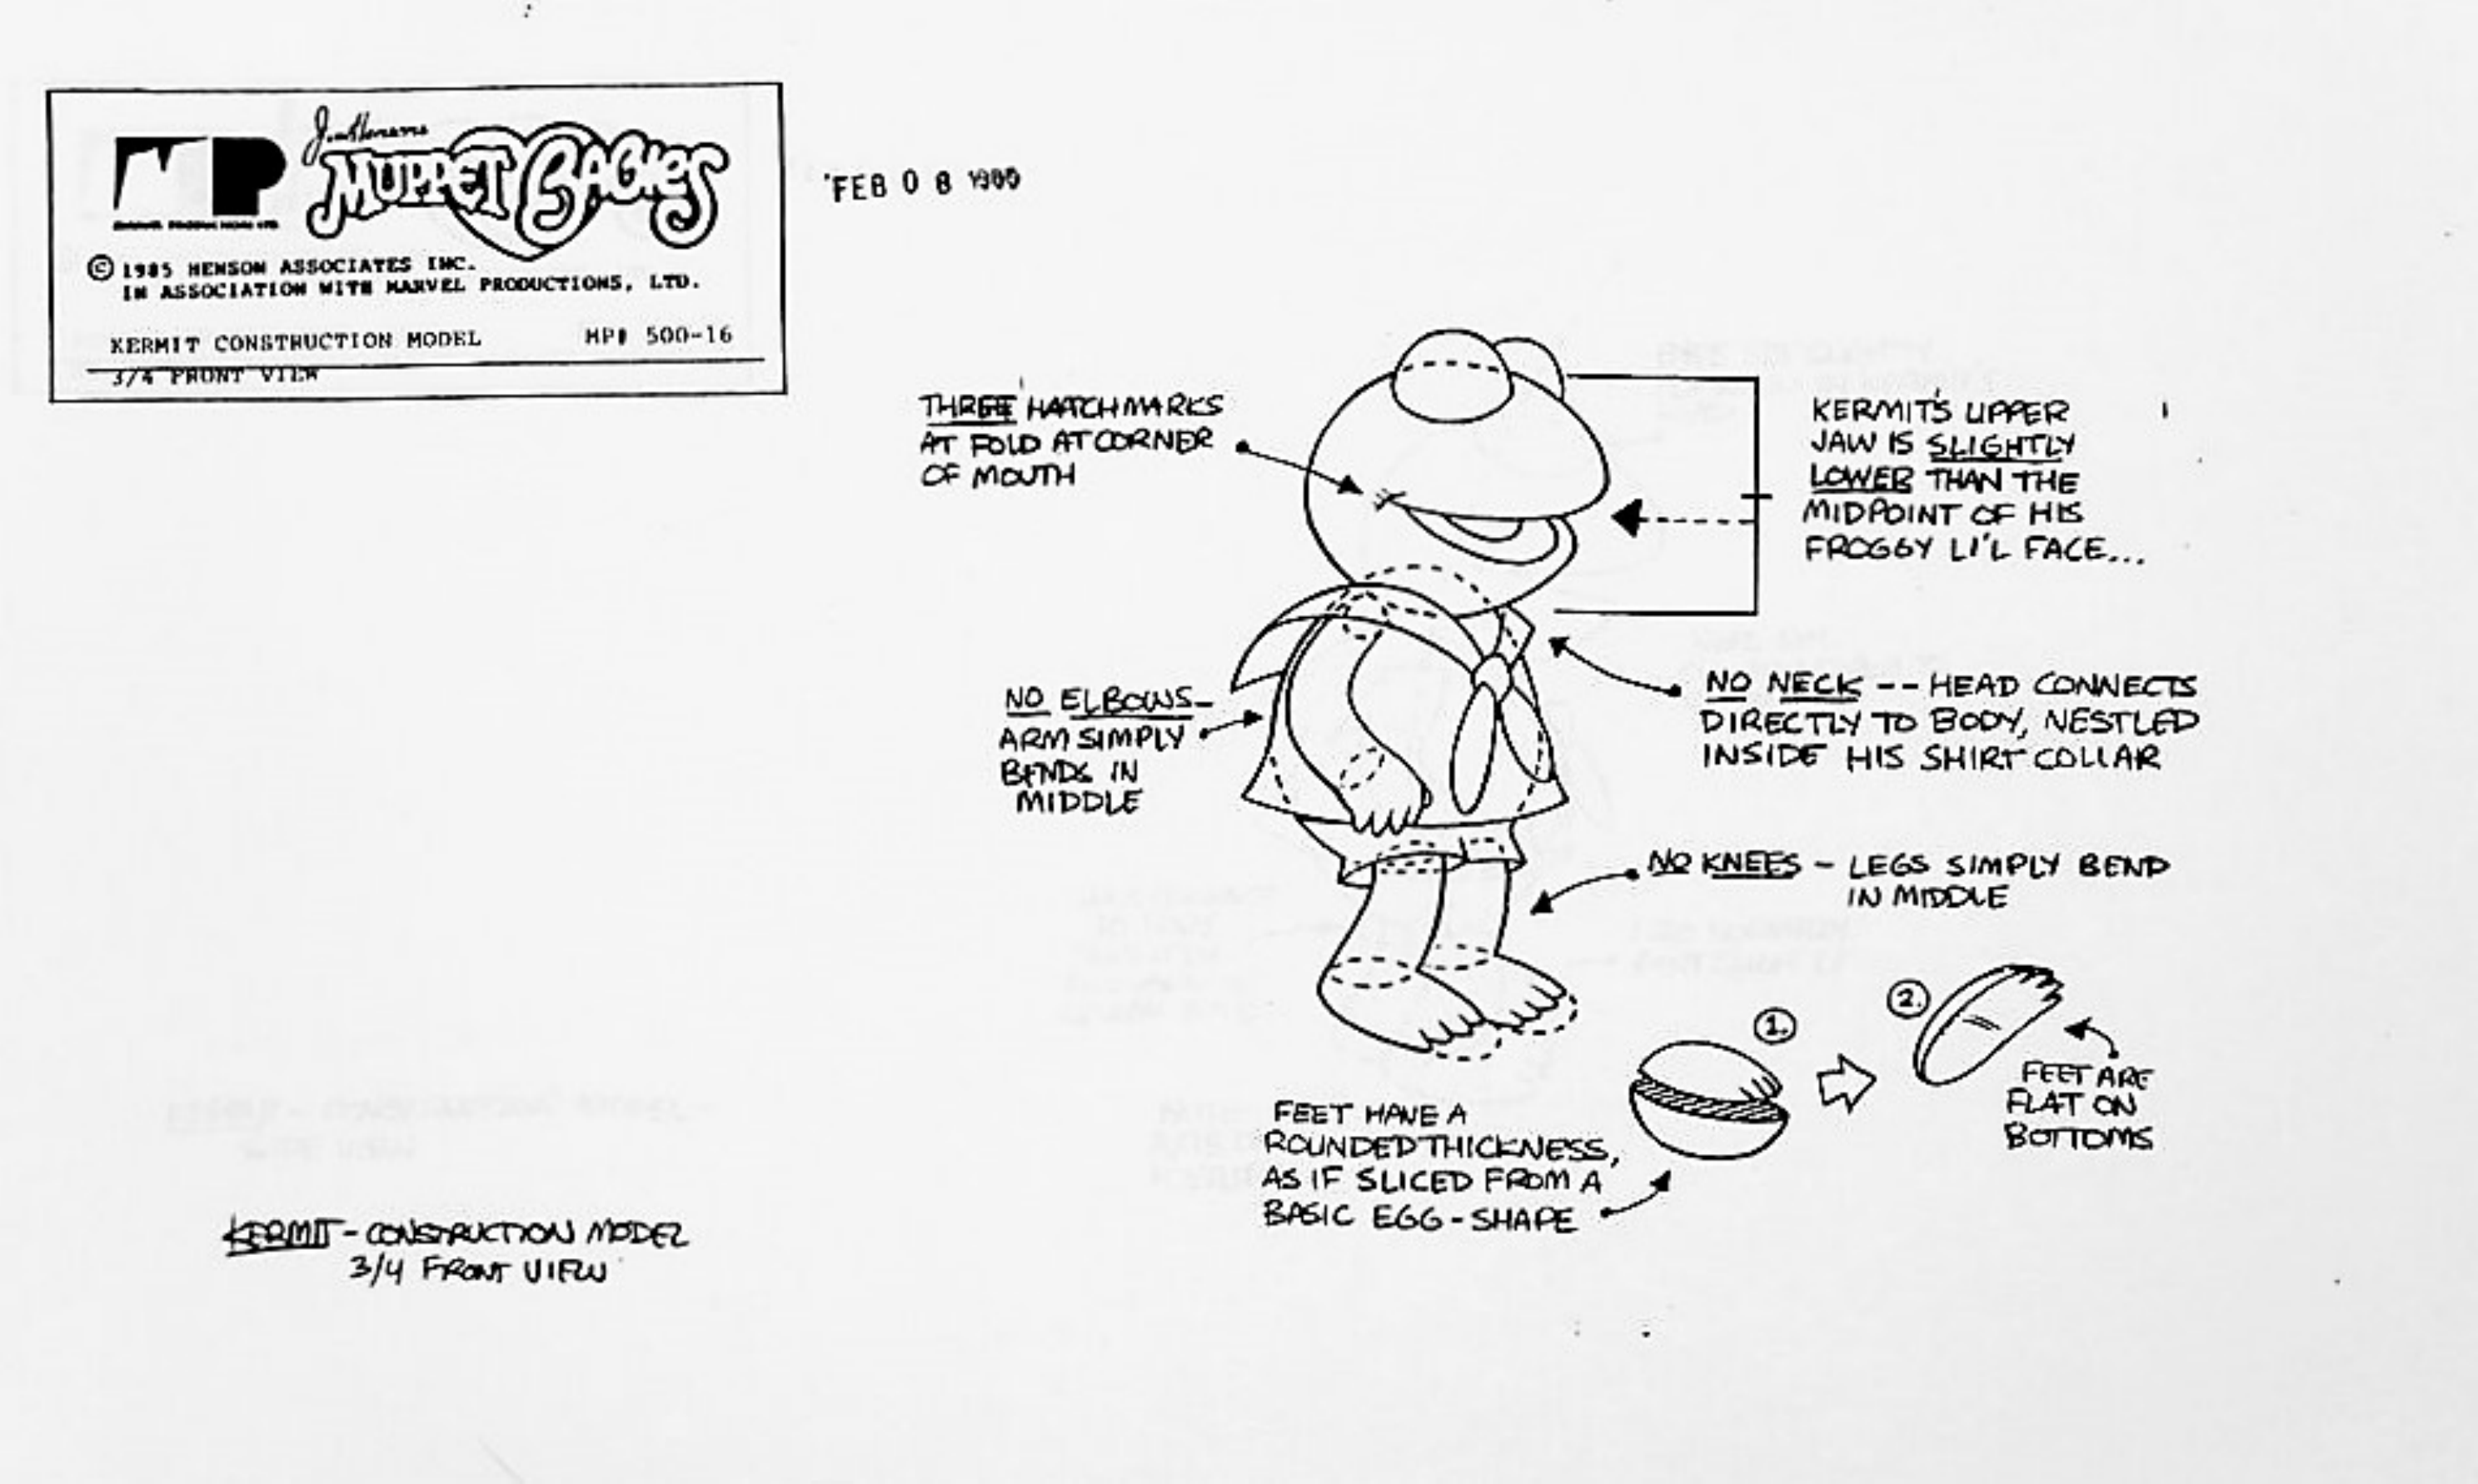 Jim Henson's
MUPPET BABIES
MP
MARVEL PRODUCTIONS LTD.
© 1985 HENSON ASSOCIATES INC.
IN ASSOCIATION WITH MARVEL PRODUCTIONS, LTD.
KERMIT CONSTRUCTION MODEL MP# 500-16
3/4 FRONT VIEW
FEB 08
THREE HATCHMARKS
AT FOLD AT CORNER
OF MOUTH
KERMIT'S UPPER
JAW IS SLIGHTLY
LOWER THAN THE
MIDPOINT OF HIS
FROGGY LI'L FACE...
NO ELBOWS-
ARM SIMPLY
BENDS IN
MIDDLE
NO NECK -- HEAD CONNECTS
DIRECTLY TO BODY, NESTLED
INSIDE HIS SHIRT COLLAR
NO KNEES - LEGS SIMPLY BEND
IN MIDDLE
1.
2.
FEET ARE
FLAT ON
BOTTOMS
FEET HAVE A
ROUNDED THICKNESS,
AS IF SLICED FROM A
BASIC EGG-SHAPE
KERMIT - CONSTRUCTION MODEL
3/4 FRONT VIEW